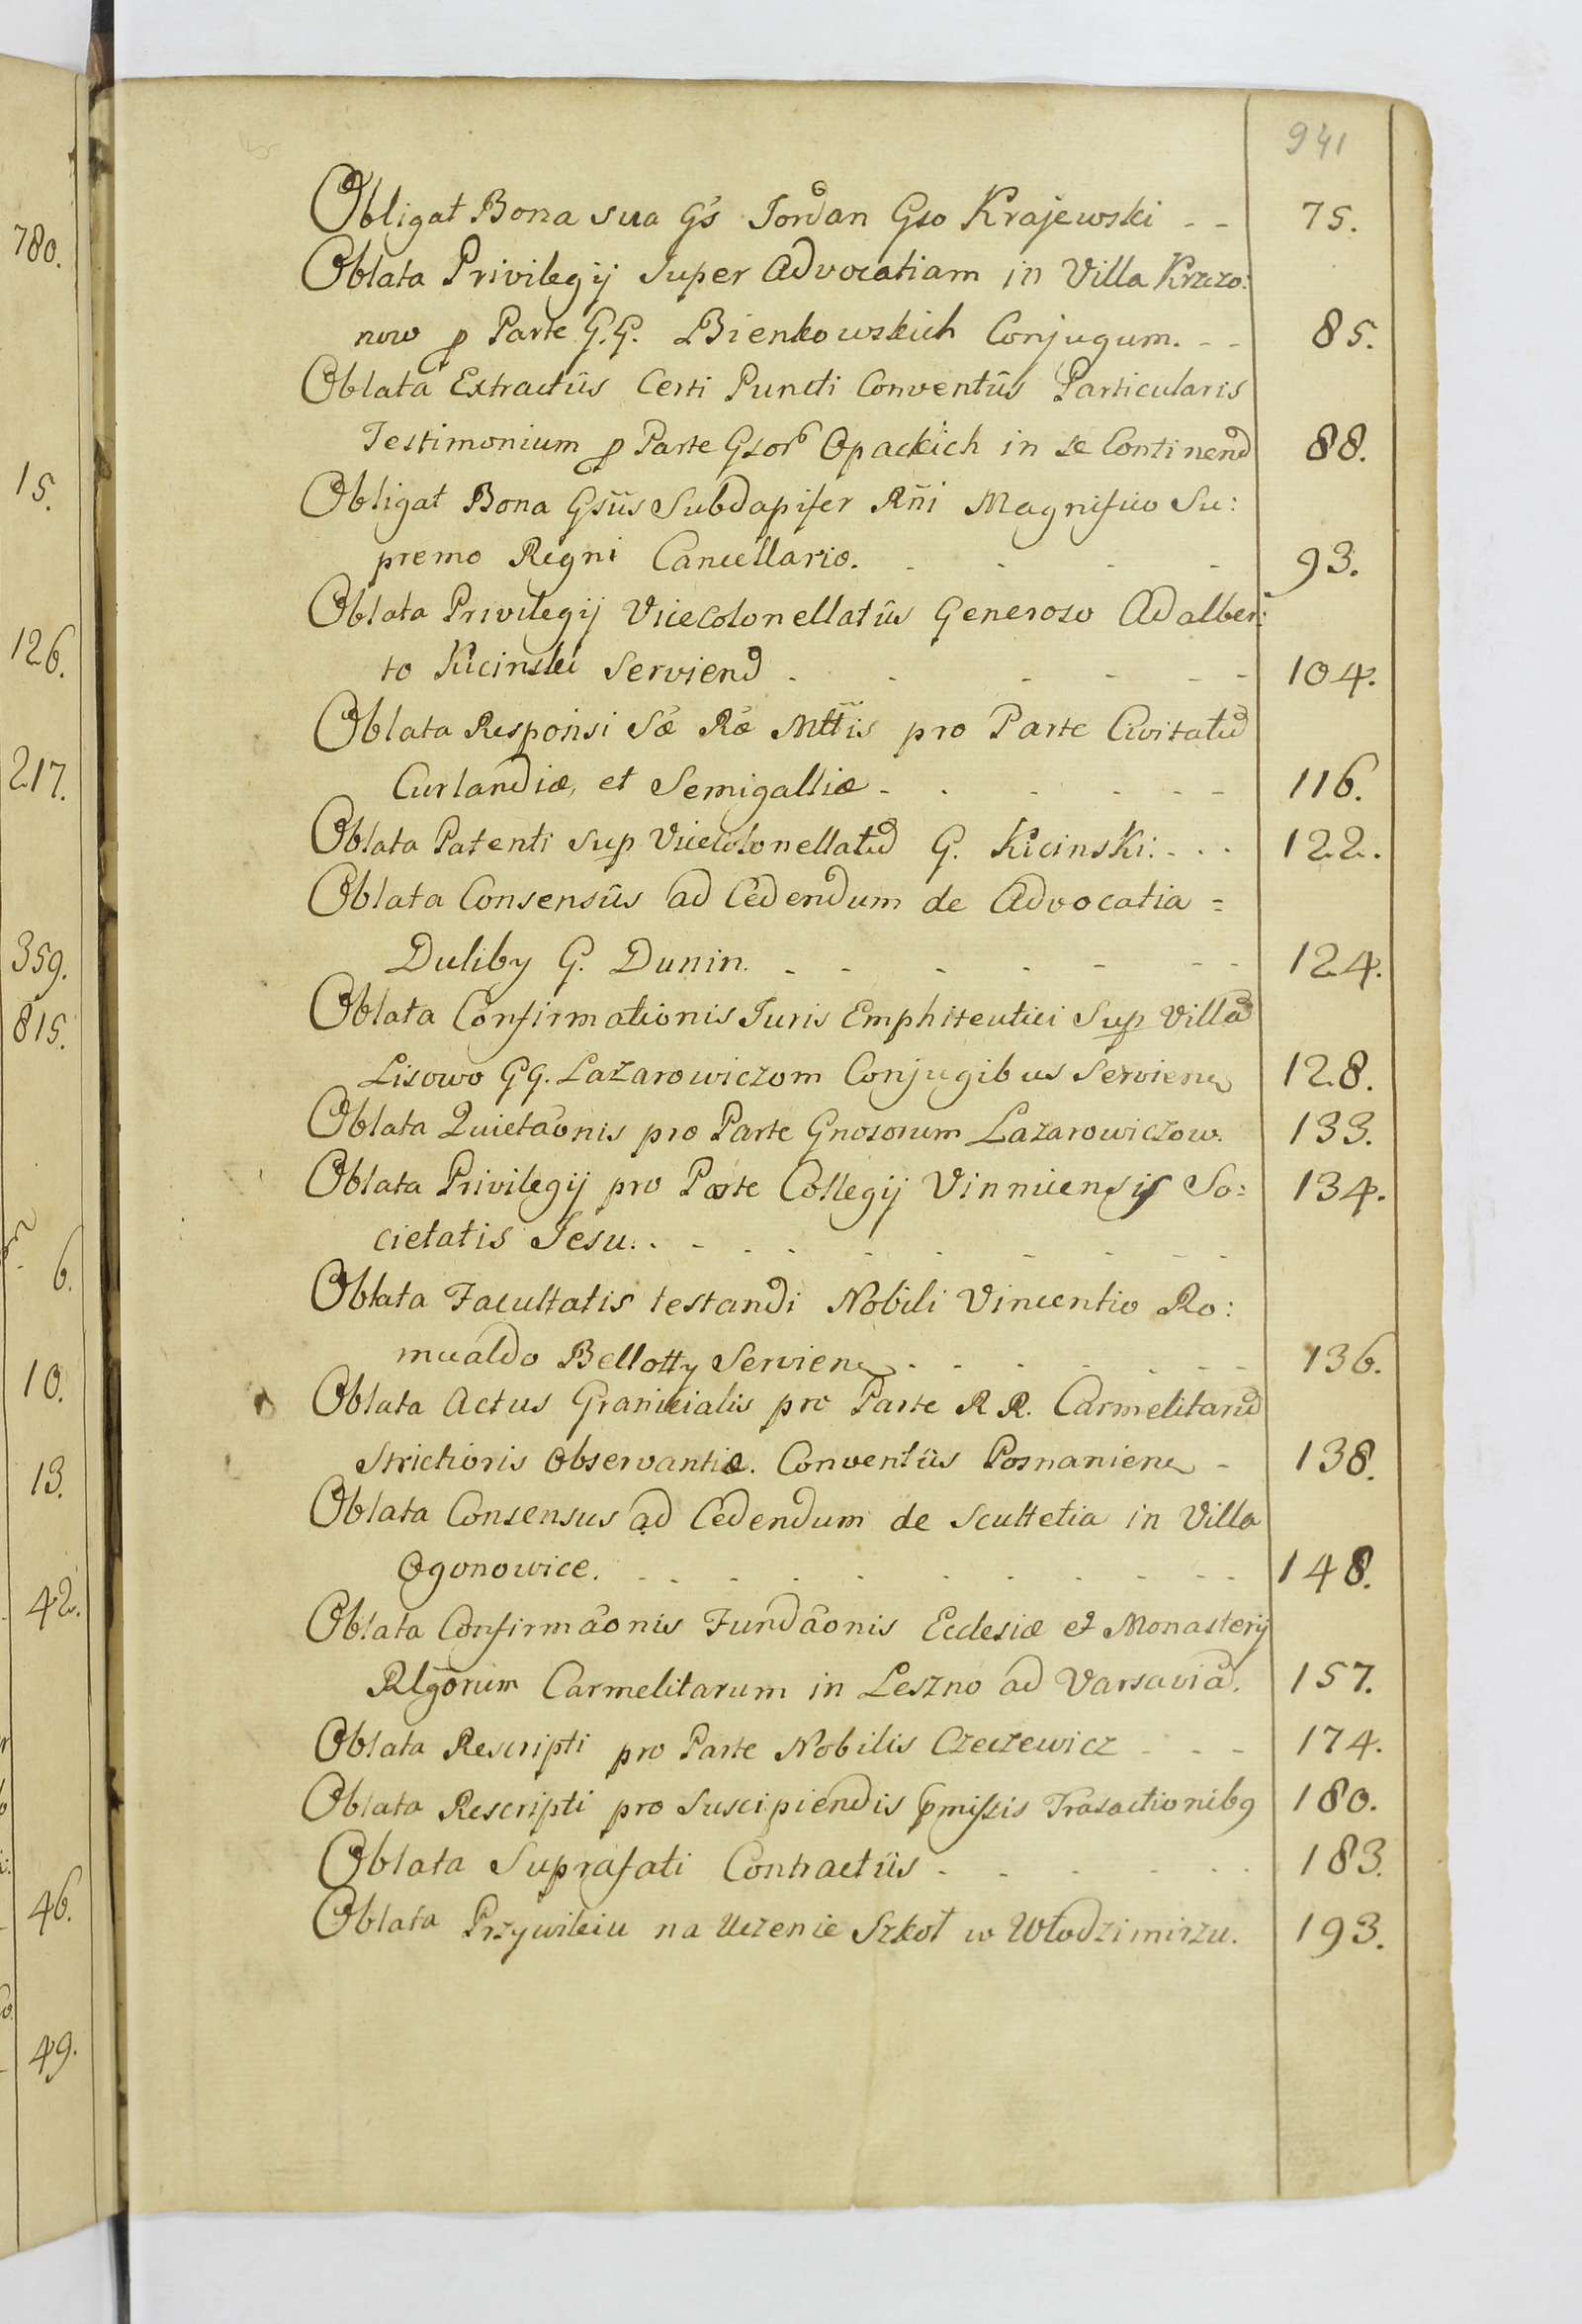 941
Obligat Bona sua Gs Jordan Gso Krajewski - - 75.
Oblata Privilegij Super Advocatiam in Villa Krzczo:
now p Parte G.G. Bienkowskich Conjugum. - - 85.
Oblata Extractûs Certi Puncti Conventûs Particularis
Testimonium p Parte Gsor Opackich in se Continend 88.
Obligat Bona Gsûs Subdapifer Rñi Magnifico Su:
premo Regni Cancellario. - - - - 93.
Oblata Privilegij ViceColonellatûs Generoso Adalber:
to Kicinski Serviend - - - - - - 104.
Oblata Responsi Sæ Ræ Mttis pro Parte Civitatu
Curlandiæ, et Semigalliæ - - - - - - 116.
Oblata Patenti Sup Vicecolonellatu G. Kicinski. - - - 122.
Oblata Consensûs ad Cedendum de Advocatia =
Duliby G. Dunin. - - - - - - - 124.
Oblata Confirmationis Juris Emphiteutici Sup Villa
Lisowo GG. Lazarowiczom Conjugibus Servien 128.
Oblata Quietaõnis pro Parte Gnosorum Lazarowiczow. 133.
Oblata Privilegij pro Parte Collegij Vinnicensis So= 134.
cietatis Jesu. - - - - - - - - -
Oblata Facultatis testandi Nobili Vincentio Ro:
mualdo Bellotty Servien - - - - - - - 136.
Oblata Actus Granicialis pro Parte R R. Carmelitaru
Strictioris Observantiæ. Conventûs Posnanien - 138.
Oblata Consensus ad Cedendum de Scultetia in Villa
Ogonowice. - - - - - - - - - - 148.
Oblata Confirmaõnis Fundaõnis Ecclesiæ et Monasterij
Rlgõrum Carmelitarum in Leszno ad Varsavia. 157.
Oblata Rescripti pro Parte Nobilis Czeczewicz - - - 174.
Oblata Rescripti pro Suscipiendis pmissis Trasactionib9 180.
Oblata Suprafati Contractûs - - - - - - 183.
Oblata Przywileiu na Uczenie Szkoł w Włodzimirzu. 193.
780.
15.
126.
217.
359.
815.
6.
10.
13.
42.
46.
49.